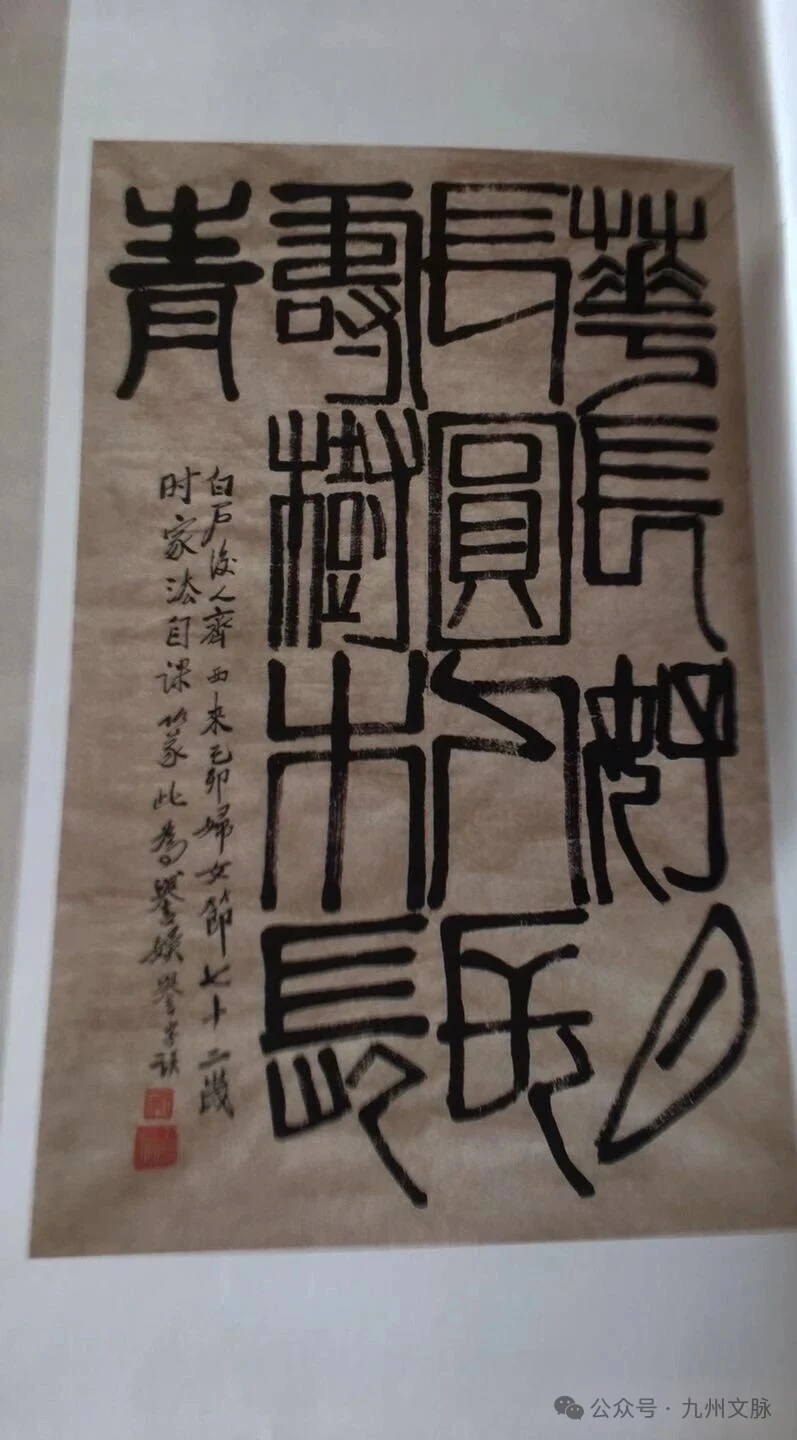 華長好月
長圓人長
壽樹木長
青
白石後人齊西来己卯婦女節七十二歲
时家法自课篆此為
公众号·九州文脉